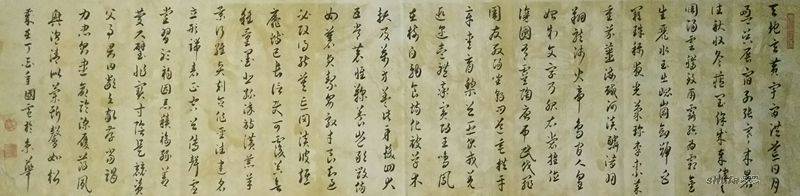 天地玄黃宇宙洪荒日月
盈昃辰宿列張寒來暑
往秋收冬藏閏餘成歲律
呂調陽雲騰致雨露結為霜金
生麗水玉出崑岡劍號巨
闕珠稱夜光菓珍李柰菜
重芥薑海鹹河淡鱗潛羽
翔龍師火帝鳥官人皇
始制文字乃服衣裳推位
讓國有虞陶唐弔民伐罪
周發殷湯坐朝問道垂拱平
章愛育黎首臣伏戎羌
遐邇壹體率賓歸王鳴鳳
在樹白駒食場化被草木
賴及萬方蓋此身髮四大
五常恭惟鞠養豈敢毀傷
女慕貞絜男效才良知過
必改得能莫忘罔談彼短
靡恃己長信使可覆器
欲難量墨悲絲染詩讚羔羊
景行維賢克念作聖德建名
立形端表正空谷傳聲虛
堂習聽禍因惡積福緣善
慶尺璧非寶寸陰是競資
父事君曰嚴與敬孝當竭
力忠則盡命臨深履薄夙
興溫凊似蘭斯馨如松
歲在丁亥年國雲於京華